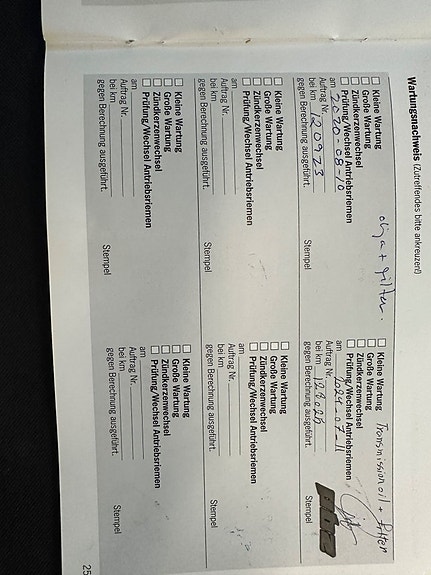 Wartungsnachweis (Zutreffendes bitte ankreuzen!)
Kleine Wartung
Große Wartung
Zündkerzenwechsel
Prüfung/Wechsel Antriebsriemen
am 2020-08-10
Auftrag Nr.
bei km 120923
gegen Berechnung ausgeführt.
olja + filter.
Stempel
Kleine Wartung
Große Wartung
Zündkerzenwechsel
Prüfung/Wechsel Antriebsriemen
Transmission oil + filter
am
Auftrag Nr.
bei km
gegen Berechnung ausgeführt.
Stempel
Kleine Wartung
Große Wartung
Zündkerzenwechsel
Prüfung/Wechsel Antriebsriemen
am
Auftrag Nr.
bei km
gegen Berechnung ausgeführt.
Stempel
Kleine Wartung
Große Wartung
Zündkerzenwechsel
Prüfung/Wechsel Antriebsriemen
am
Auftrag Nr.
bei km
gegen Berechnung ausgeführt.
Stempel
Kleine Wartung
Große Wartung
Zündkerzenwechsel
Prüfung/Wechsel Antriebsriemen
am
Auftrag Nr.
bei km
gegen Berechnung ausgeführt.
Stempel
Kleine Wartung
Große Wartung
Zündkerzenwechsel
Prüfung/Wechsel Antriebsriemen
am
Auftrag Nr.
bei km
gegen Berechnung ausgeführt.
Stempel
25